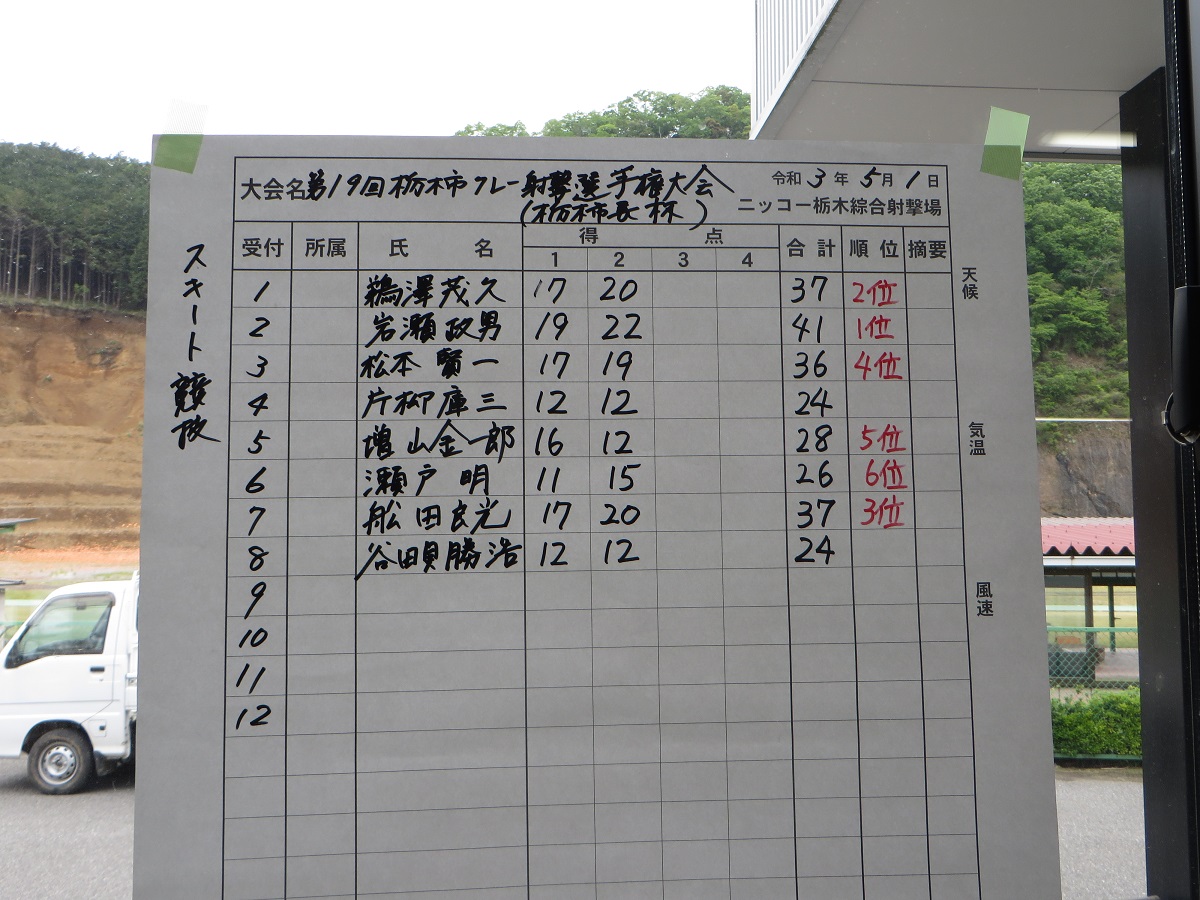 大会名 第19回栃木市クレー射撃選手権大会 令和3年5月1日
(栃木市長杯) ニッコー栃木綜合射撃場
スキート競技
受付 所属 氏名 得点 合計 順位 摘要
1 2 3 4
1 鵜澤茂久 17 20 37 2位
2 岩瀬政男 19 22 41 1位
3 松本賢一 17 19 36 4位
4 片柳庫三 12 12 24
5 増山金一郎 16 12 28 5位
6 瀬戸明 11 15 26 6位
7 舩田良光 17 20 37 3位
8 谷田貝勝浩 12 12 24
9
10
11
12
天候
気温
風速